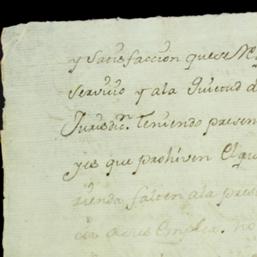 y satisfaccion que se
Servicio y a la Quietud d
Jurisdicn. teniendo presen
yes que prohiven El qu
rienda falten a la pres